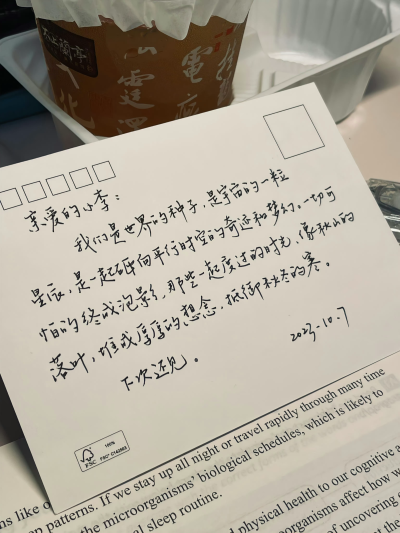 兰亭
亲爱的小李：
我们是世界的种子，是宇宙的一粒
星辰，是一起砸向平行时空的奇迹和梦幻。一切可
怕的终成泡影，那些一起度过的时光，像秋山的
落叶，堆成厚厚的想念，抵御秋冬的寒。
下次还见。
2023-10.7
FSC
100%
ns like o
patterns. If we stay up all night or travel rapidly through many time
the microorganisms' biological schedules, which is likely to
al sleep routine.
d physical health to our cognitive a
oorganisms affect how w
of uncovering